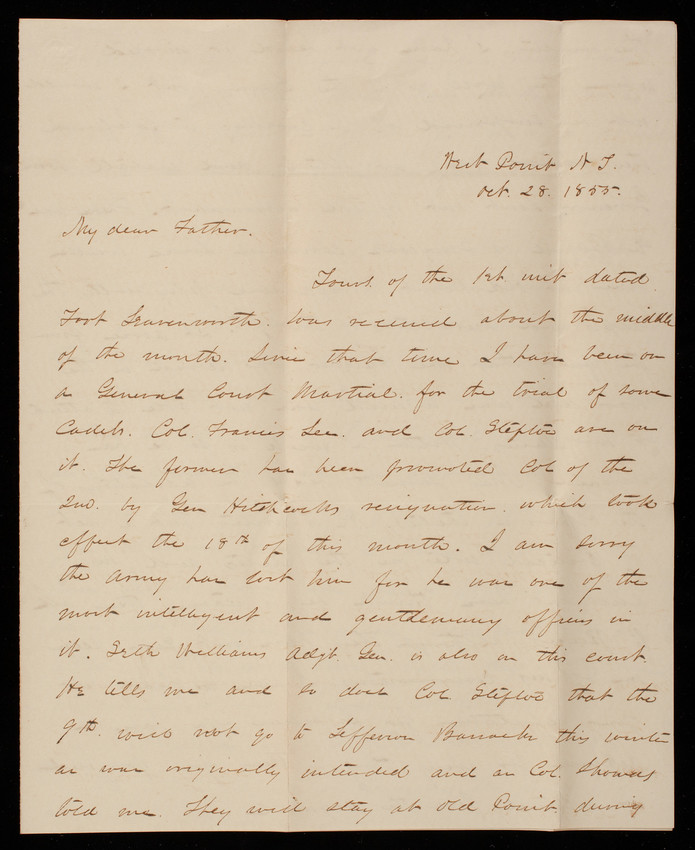 West Point N Y.
Oct. 28. 1855.
My dear Father.
Yours. of the 1st inst dated
Fort Leavenworth. was received about the middle
of the month. Since that time I have been on
a General Court Martial. for the trial of some
Cadets. Col. Francis Lee. and Col. Steptoe are on
it. The former has been promoted Col of the
2nd. by Gen Hitchcocks resignation. which took
effect the 18th of this month. I am sorry
the army has lost him for he was one of the
most intelligent and gentlemanly officers in
it. Seth Williams Adgt. Gen. is also on this court.
He tells me and so does Col Steptoe that the
9th. will not go to Jefferson Barracks this winter
as was originally intended and as Col. Thomas
told me. They will stay at Old Point during